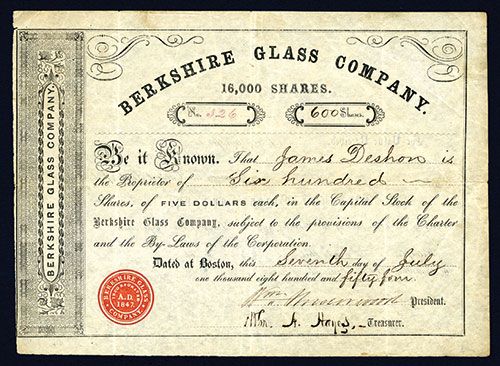 BERKSHIRE GLASS COMPANY.
BERKSHIRE GLASS COMPANY.
16,000 SHARES.
No. 326
600 Shares.
Be it Known. That James Deshon is
the Proprietor of Six hundred
Shares, of FIVE DOLLARS each, in the Capital Stock of the
Berkshire Glass Company, subject to the provisions of the Charter
and the By-Laws of the Corporation.
Dated at Boston, this Seventh day of July
one thousand eight hundred and fifty four
Underwood President.
A. Hayes, Treasurer.
BERKSHIRE GLASS
A.D.
1847.
COMPANY.